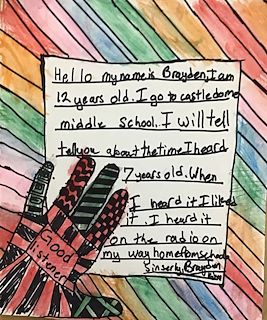 Hello my name is Brayden, I am
12 years old. I go to castledome
middle school. I will tell
tell you about the time I heard
7 years old. When
I heard it I liked
it. I heard it
on the radio on
my way home fom school
Sinserly, Brayden
Good
listener